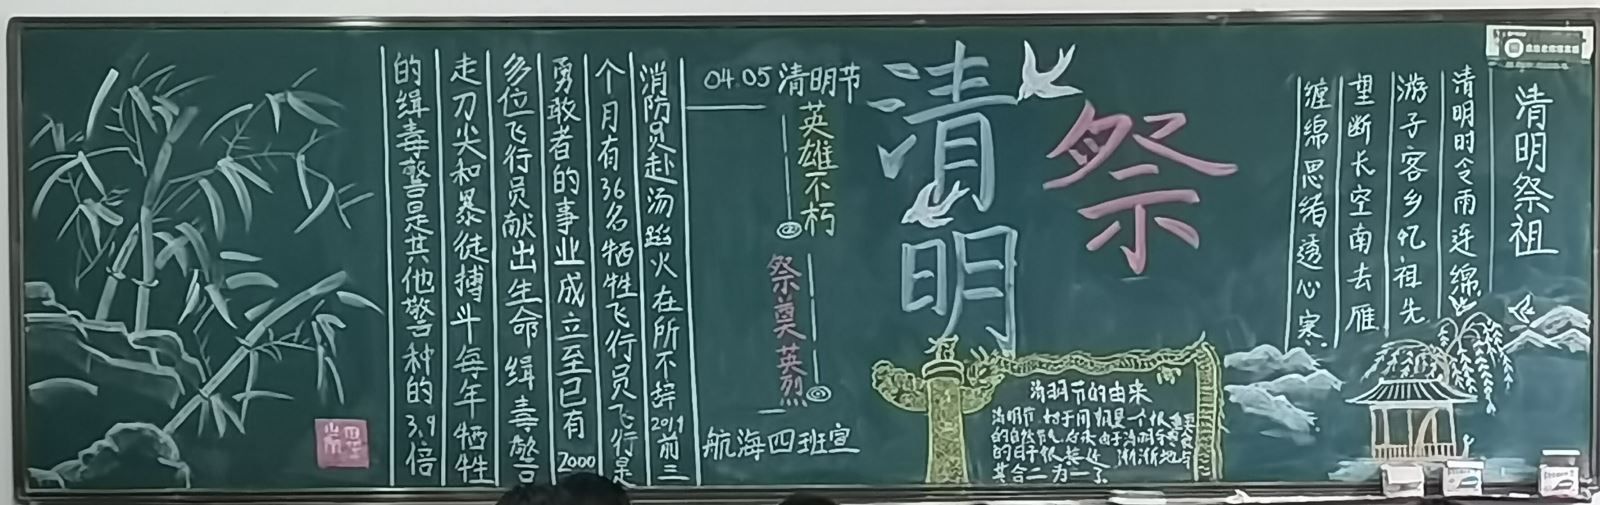 清明祭祖
清明时令雨连绵
游子客乡忆祖先
望断长空南去雁
缠绵思绪透心寒
祭
清明
清明节的由来
清明节 始于周朝是一个很重要
的自然节气 后来由于清明与寒食
的日子很接近 渐渐地与
其合二为一了
04.05 清明节
英雄不朽
祭奠英烈
航海四班宣
消防员赴汤蹈火在所不辞2019前三
个月有36名牺牲飞行员飞行是
勇敢者的事业成立至已有2000
多位飞行员献出生命 缉毒警
走刀尖和暴徒搏斗每年牺牲
的缉毒警是其他警种的3.9倍